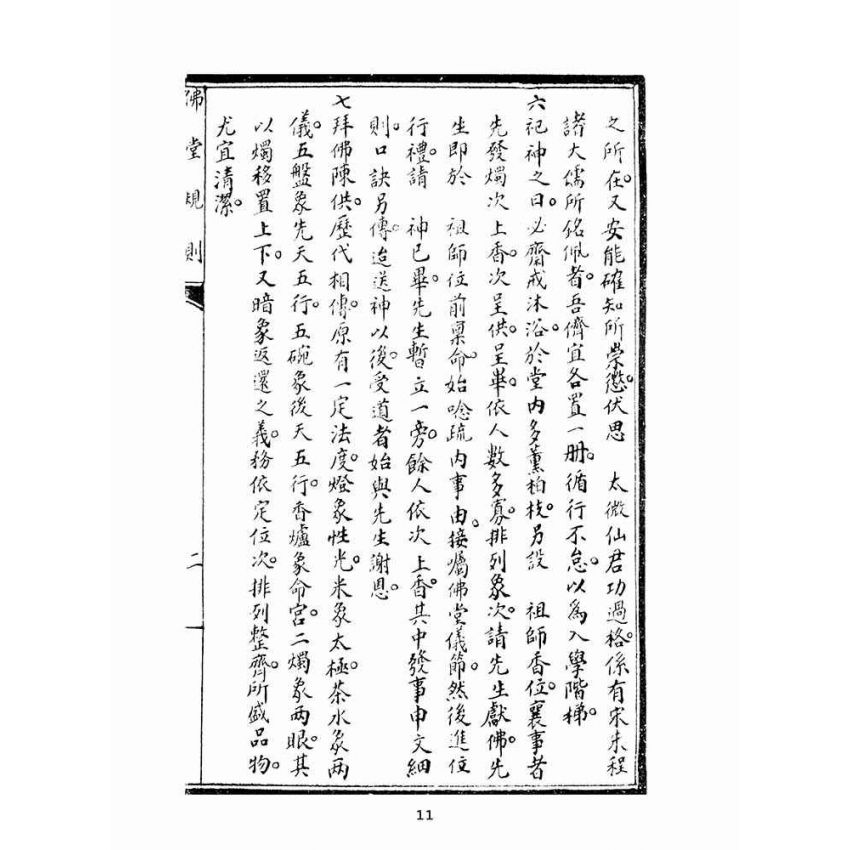 之所在。又安能確知所榮懲。伏思　太微仙君功過格。係有宋朱程
諸大儒所銘佩者。吾儕宜各置一册。循行不怠。以爲入學階梯。
六祀神之日。必齋戒沐浴。於堂內多薰柏枝。另設　祖師香位。襄事者
先發燭。次上香。次呈供。呈畢。依人數多寡。排列象次。請先生獻佛。先
生即於　祖師位前稟命。始唸疏內事由。接囑佛堂儀節。然後進位
行禮。請　神已畢。先生暫立一旁。餘人依次上香。其中發事申文細
則。口訣另傳。迨送神以後。受道者始與先生謝恩。
七拜佛陳供。歷代相傳。原有一定法度。燈象性光。米象太極。茶水象兩
儀。五盤象先天五行。五碗象後天五行。香爐象命宮。二燭象兩眼。其
以燭移置上下。又暗象返還之義。務依定位次。排列整齊。所盛品物。
尤宜清潔。
佛堂規則
二
11